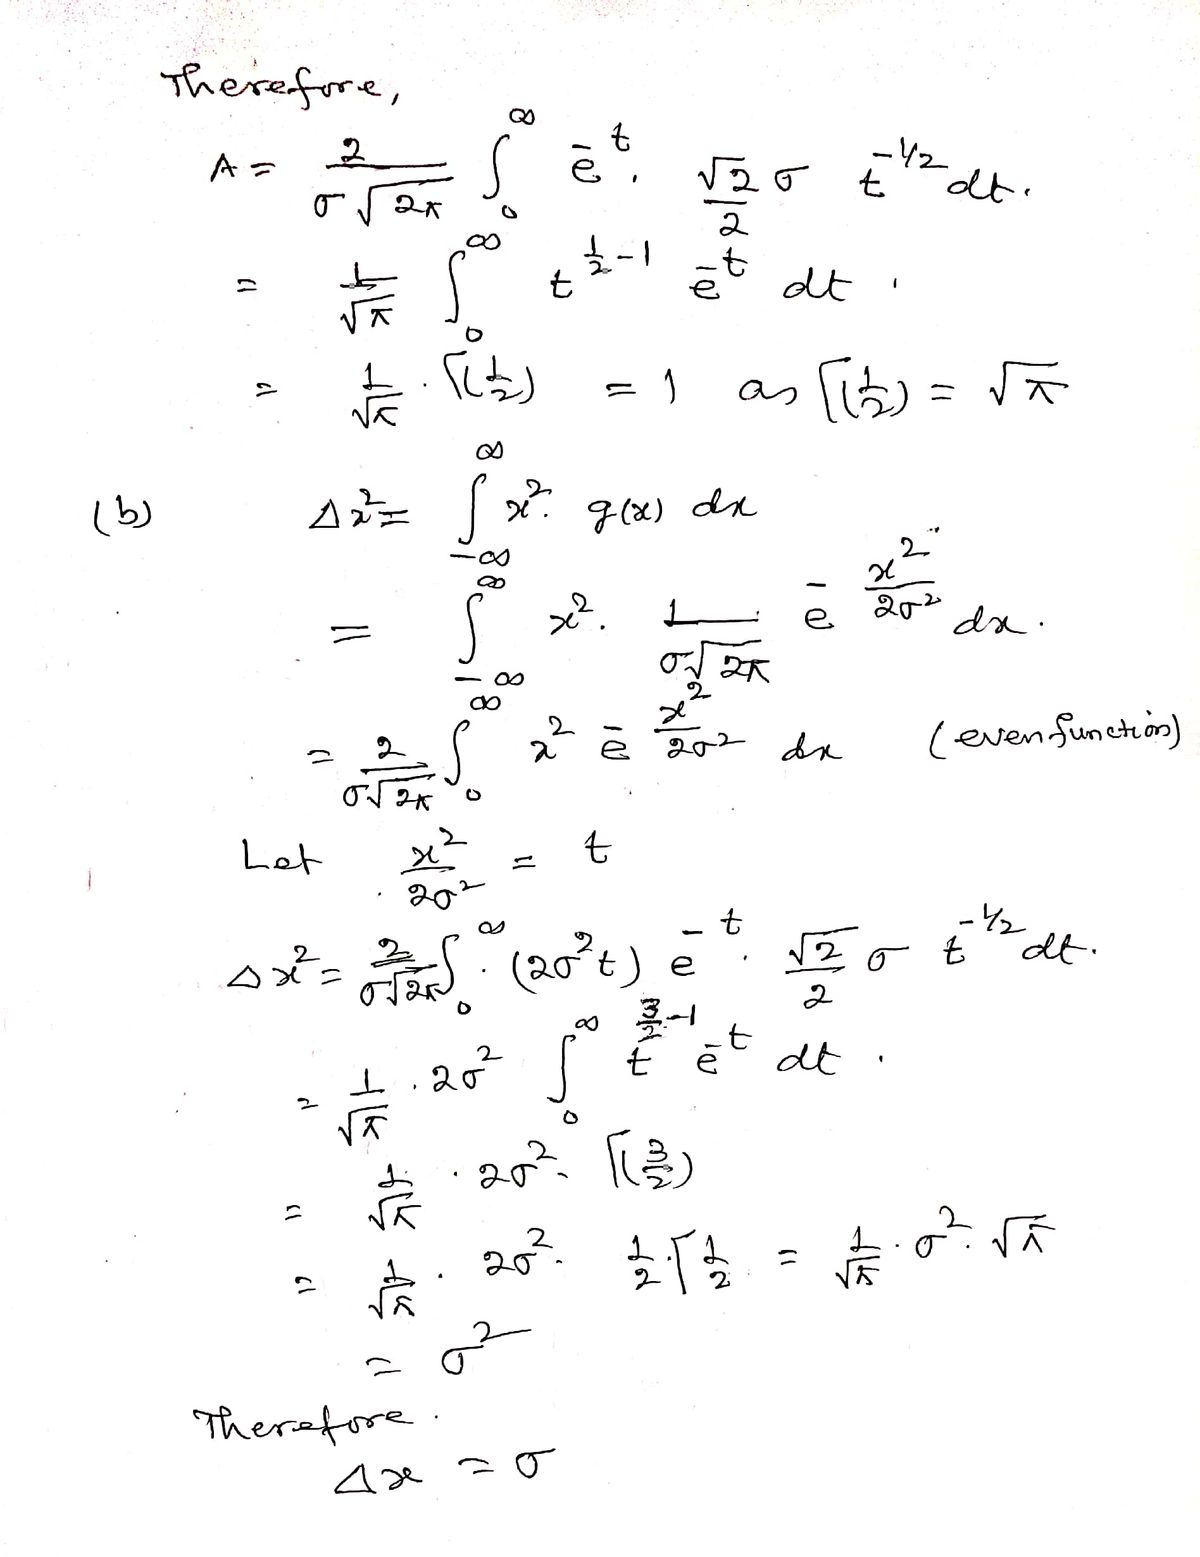 Therefore,
A = 2/(σ√2π) ∫₀^∞ e^-t . (√2/2) σ t^-1/2 dt.
= 1/√π ∫₀^∞ t^(1/2 - 1) e^-t dt .
= 1/√π . Γ(1/2) = 1 as Γ(1/2) = √π
(b) Δx² = ∫_-∞^∞ x². g(x) dx
= ∫_-∞^∞ x². 1/(σ√2π) e^-(x²/2σ²) dx.
= 2/(σ√2π) ∫₀^∞ x² e^-(x²/2σ²) dx (even function)
Let x²/2σ² = t
Δx² = 2/(σ√2π) ∫₀^∞ . (2σ²t) e^-t . (√2/2) σ t^-1/2 dt.
= 1/√π . 2σ² ∫₀^∞ t^(3/2 - 1) e^-t dt .
= 1/√π . 2σ². Γ(3/2)
= 1/√π . 2σ². 1/2 . Γ1/2 = 1/√π . σ². √π
= σ²
Therefore.
Δx = σ